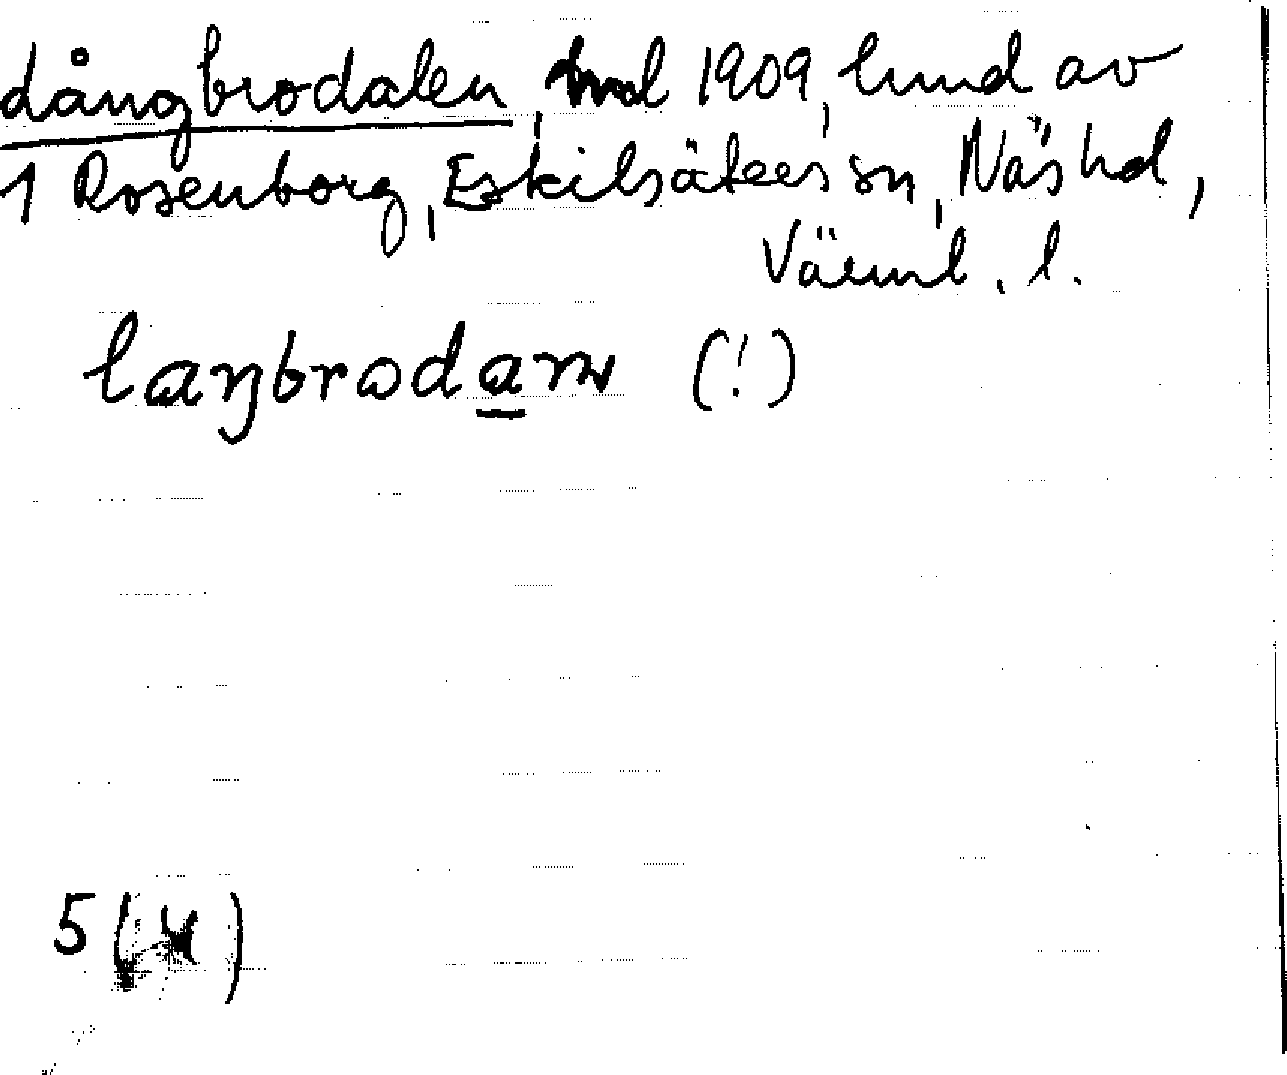 dångbrodalen, tmd 1909, hmd av
1 Rosenborg, Eskilsäters sn, Näs hd,
Värml. l.
laŋbrodaṉ (!)
5(x)